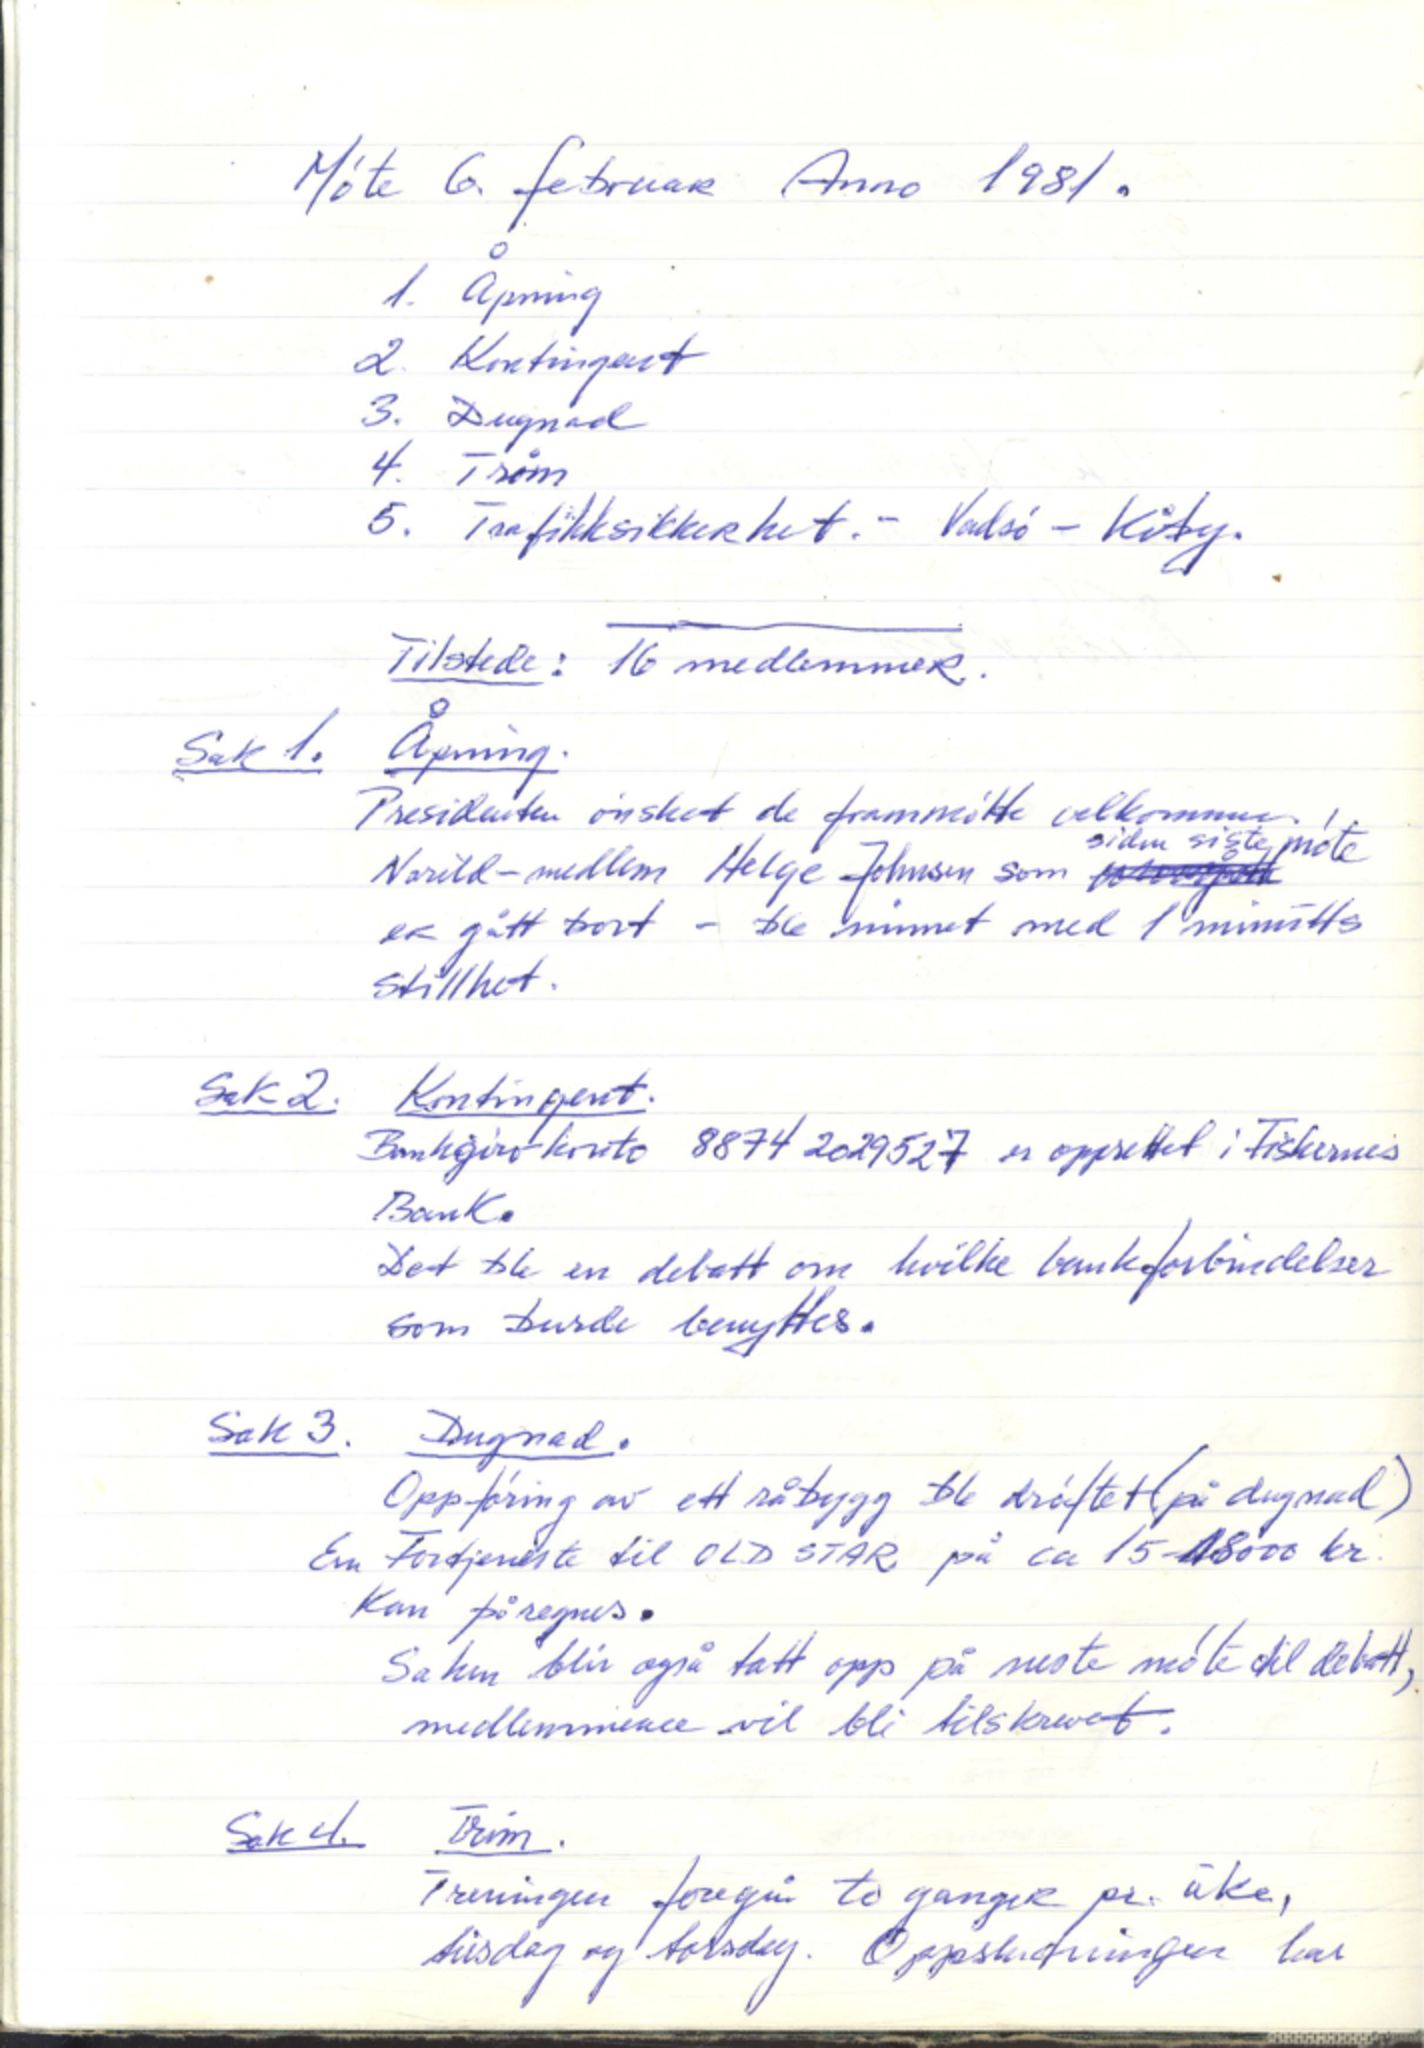 Møte 6. februar Anno 1981.
1. Åpning
2. Kontingent
3. Dugnad
4. Trim
5. Trafikksikkerhet. - Vadsø - Kiby.
Tilstede: 16 medlemmer.
Sak 1. Åpning.
Presidenten ønsket de frammøtte velkommen.
Narild-medlem Helge Johnsen som siden siste møte
er gått bort - ble minnet med 1 minutts
stillhet.
Sak 2. Kontingent.
Bankgirokonto 8874 2029527 er opprettet i Fiskernes
Bank.
Det ble en debatt om hvilke bankforbindelser
som burde benyttes.
Sak 3. Dugnad.
Oppføring av ett råbygg ble drøftet (på dugnad)
En Fortjeneste til OLD STAR på ca 15-18000 kr.
Kan påregnes.
Saken blir også tatt opp på neste møte til debatt,
medlemmene vil bli tilskrevet.
Sak 4. Trim.
Treningen foregår to ganger pr. uke,
tirsdag og torsdag. Oppslutningen har